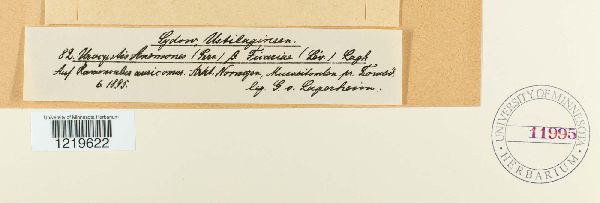 Sydow, Ustilagineen.
82. Urocystis Anemones (Pers.) β. Ficariae (Lév.) Lagh.
Auf Ranunculus auricomus. Arkt. Norwegen, pr. Tromsö.
6 1895. leg. G. v. Lagerheim.
University of Minnesota Herbarium
1219622
UNIVERSITY OF MINNESOTA
11995
HERBARIUM